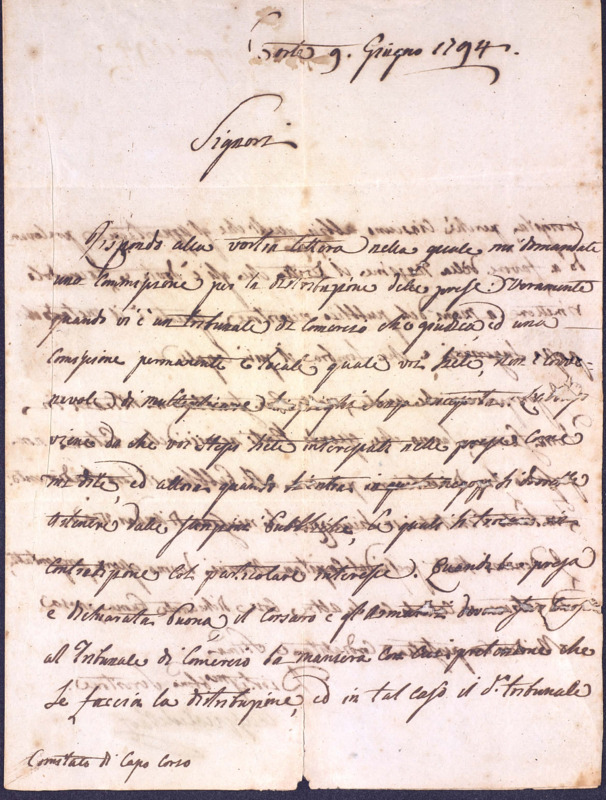 Corte 9. Giugno 1794.
Signori
Rispondo alla vostra lettera nella quale mi domandate
una Commissione per la distribuzione delle prese. Veramente
quando vi è un tribunale di Comercio che giudica ed una
Comissione permanente e locale quale voi siete, non è conve-
nevole di moltiplicare senza necessità
viene da che voi stessi siete interessati nelle prese Come
mi dite, ed allora quando si entra in si dovrebbe
astenere dalle funzioni Pubbliche, le quali si trovano in
Contradizione Col particolare interesse. Quando la presa
è dichiarata buona, il Corsaro e gl'Armatori
al Tribunale di Comercio la maniera Con Cui pretendono che
Se faccia la distribuzione, ed in tal Caso il d.º tribunale
Comitato di Capo Corso